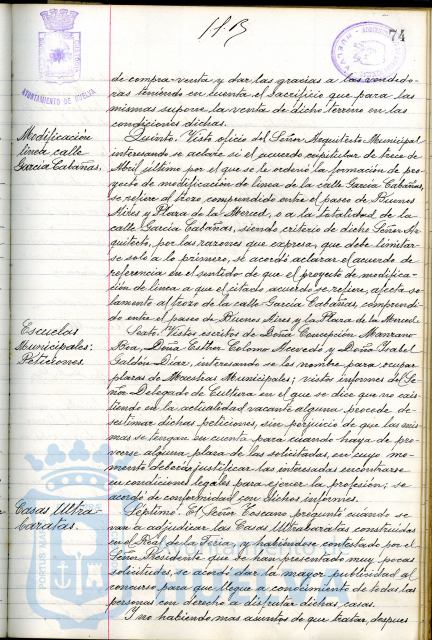 74
AYUNTAMIENTO DE HUELVA
de compra-venta y dar las gracias a las vendedo-
ras teniendo en cuenta el sacrificio que para las
mismas supone la venta de dicho terreno en las
condiciones dichas.
Modificación
línea calle
García Cabañas.
Quinto. Visto oficio del Señor Arquitecto Municipal
interesando se aclare si el acuerdo capitular de trece de
Abril último por el que se le ordenó la formación de pro-
yecto de modificación de línea de la calle García Cabañas,
se refiere al trozo comprendido entre el paseo de Buenos
Aires y Plaza de la Merced, o a la totalidad de la
calle García Cabañas, siendo criterio de dicho Señor Ar-
quitecto, por las razones que expresa, que debe limitar-
se solo a lo primero, se acordó aclarar el acuerdo de
referencia en el sentido de que el proyecto de modifica-
ción de línea a que el citado acuerdo se refiere, afecta so-
lamente al trozo de la calle García Cabañas, comprendi-
do entre el paseo de Buenos Aires y la Plaza de la Merced.
Escuelas
Municipales:
Peticiones.
Sexto. Vistos escritos de Doña Concepción Manzano
Rea, Doña Esther Colomo Acevedo y Doña Isabel
Galdón Díaz, interesando se les nombre para ocupar
plazas de Maestras Municipales; vistos informes del Se-
ñor Delegado de Cultura en el que se dice que no exis-
tiendo en la actualidad vacante alguna procede de-
sestimar dichas peticiones, sin perjuicio de que las mis-
mas se tengan en cuenta para cuando haya de pro-
veerse alguna plaza de las solicitadas, en cuyo mo-
mento deberán justificar las interesadas encontrarse
en condiciones legales para ejercer la profesión; se
acordó de conformidad con dichos informes.
Casas Ultra-
baratas.
Séptimo. El Señor Toscano preguntó cuándo se
van a adjudicar las Casas Ultrabaratas construidas
en el Real de la Feria, y habiéndose contestado por el
Señor Presidente que se han presentado muy pocas
solicitudes, se acordó dar la mayor publicidad al
concurso para que llegue a conocimiento de todas las
personas con derecho a disfrutar dichas casas.
Y no habiendo mas asuntos de que tratar, despues